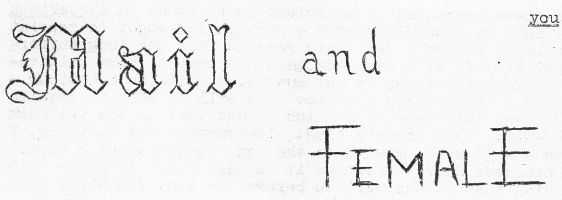 you
Mail and
FEMALE